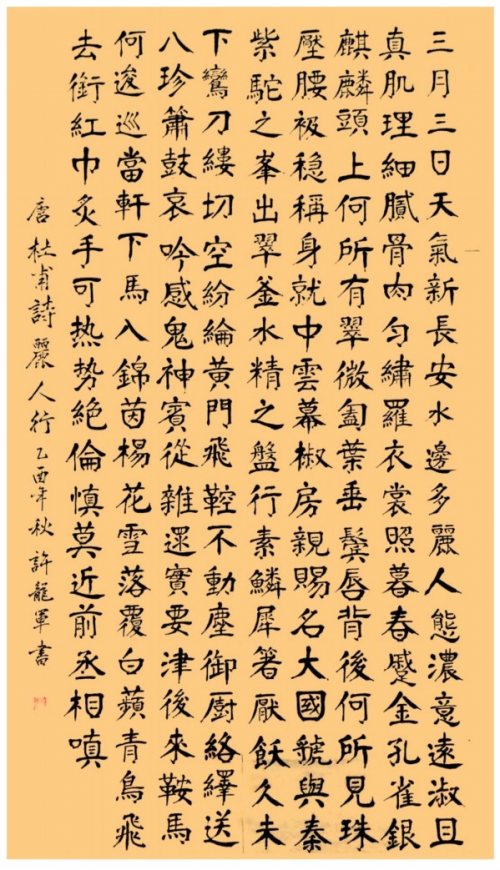 三月三日天氣新長安水邊多麗人態濃意遠淑且
真肌理細膩骨肉匀繡羅衣裳照暮春蹙金孔雀銀
麒麟頭上何所有翠微㔩葉垂鬓唇背後何所見珠
壓腰衱稳稱身就中雲幕椒房親賜名大國虢與秦
紫駝之峯出翠釜水精之盤行素鱗犀箸厭飫久未
下鸞刀縷切空紛綸黄門飛鞚不動塵御厨絡繹送
八珍簫鼓哀吟感鬼神賓從雜遝實要津後來鞍馬
何逡巡當軒下馬入錦茵楊花雪落覆白蘋青鳥飛
去銜紅巾炙手可热势絶倫慎莫近前丞相嗔
唐杜甫詩麗人行乙酉年秋許龍軍書